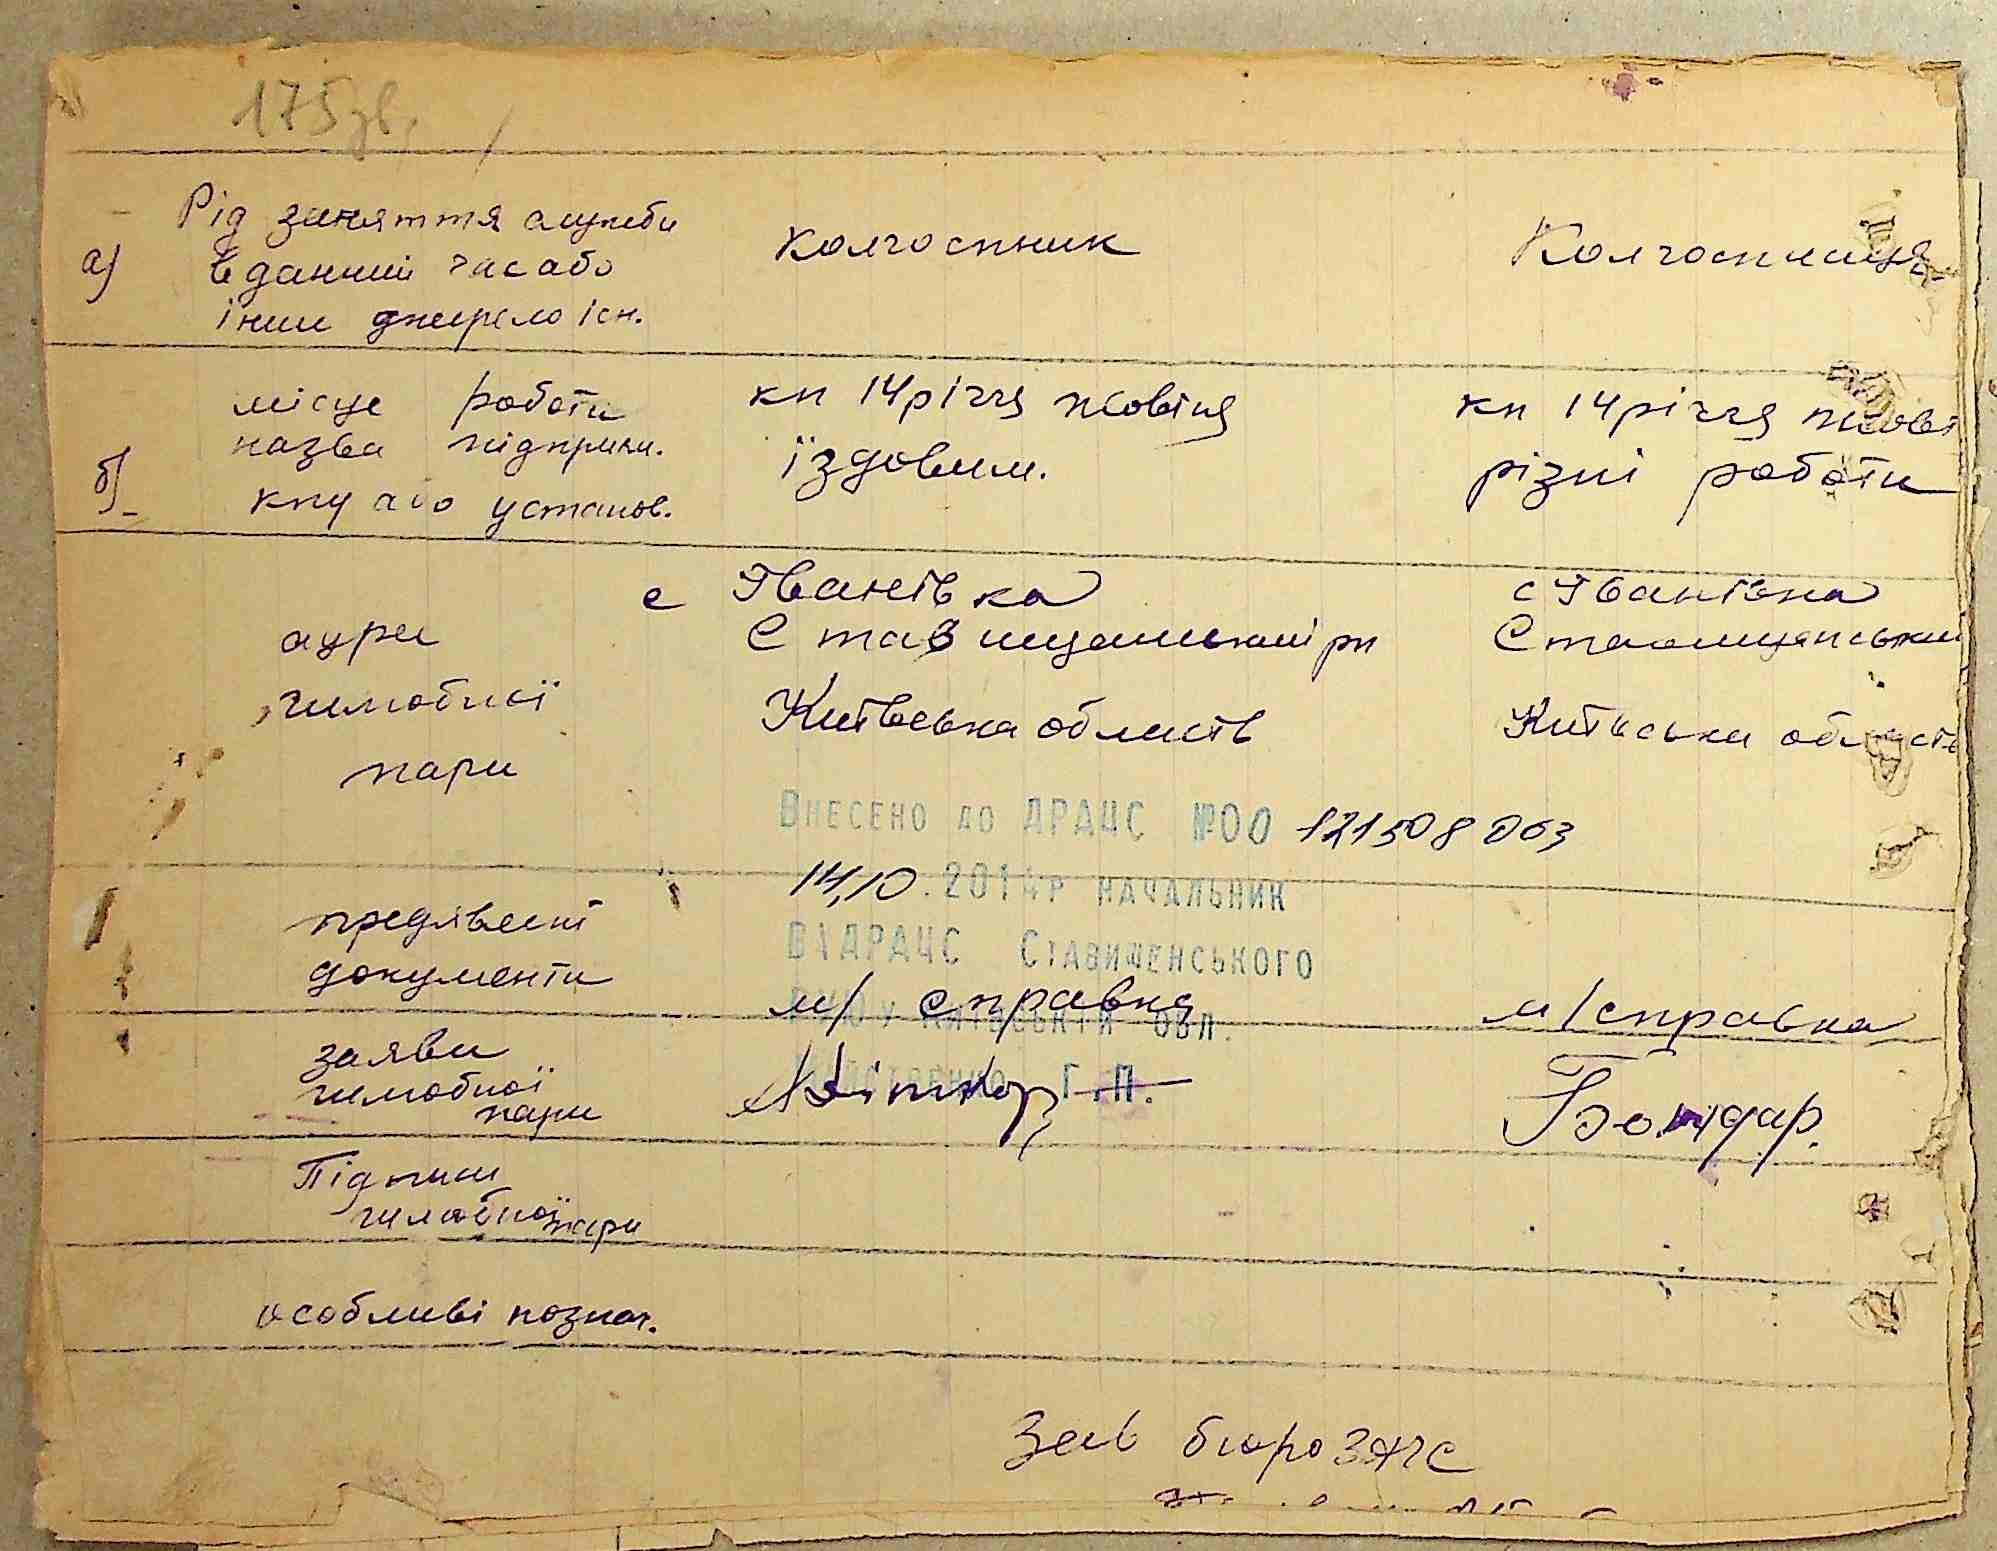 175зв.
а) Рід заняття служби колгоспник Колгоспниця
в данний час або
інше джерело існ.
місце роботи кп 14 річчя жовтня кп 14 річчя жовт
назва підприєм. їздовим. різні роботи
б) кпу або установ.
с Іванівка с Іванівка
адреи Ставищанський рн Ставищанський
шлюбної Київська область Київська область
пари
Внесено до ДРАЦС №00 121508 063
14,10.2014р начальник
ВДРАЦС Ставищенського
РУЮ у Київській обл.
Г.П.
предявлені
документи м/ справка м/справка
заяви
шлюбної Бондар.
пари
Підписи
шлюбної пари
особливі познач.
Зав бюро ЗАГС